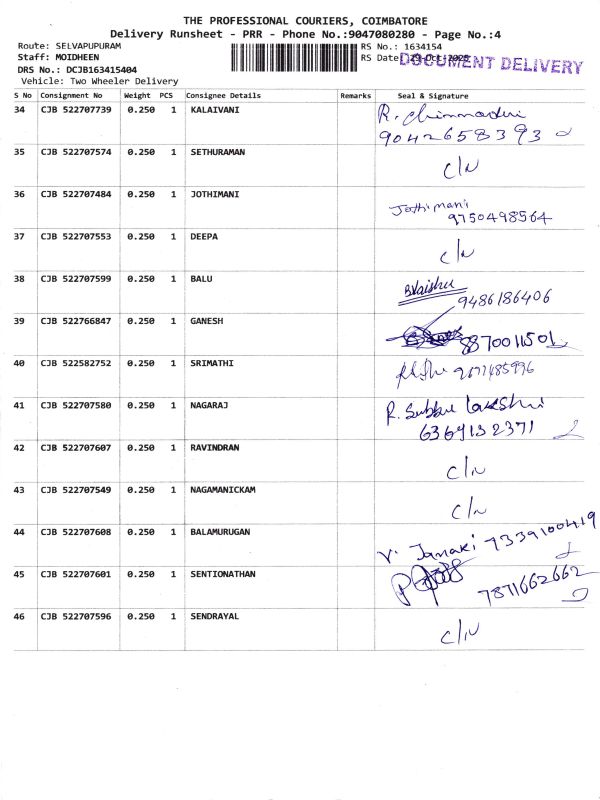 THE PROFESSIONAL COURIERS, COIMBATORE
Delivery Runsheet - PRR - Phone No.:9047080280 - Page No.:4
Route: SELVAPUPURAM
RS No.: 1634154
Staff: MOIDHEEN
RS Date: 29-Oct-2025
DOCUMENT DELIVERY
DRS No.: DCJB163415404
Vehicle: Two Wheeler Delivery
S No Consignment No Weight PCS Consignee Details Remarks Seal & Signature
34 CJB 522707739 0.250 1 KALAIVANI R. Chinnadurai
9042658393
35 CJB 522707574 0.250 1 SETHURAMAN C/N
36 CJB 522707484 0.250 1 JOTHIMANI Jothimani
9750498564
37 CJB 522707553 0.250 1 DEEPA C/N
38 CJB 522707599 0.250 1 BALU
9486186406
39 CJB 522766847 0.250 1 GANESH 8870011501
40 CJB 522582752 0.250 1 SRIMATHI
41 CJB 522707580 0.250 1 NAGARAJ R. Subbu lakshmi
6369132371
42 CJB 522707607 0.250 1 RAVINDRAN C/N
43 CJB 522707549 0.250 1 NAGAMANICKAM C/N
44 CJB 522707608 0.250 1 BALAMURUGAN V. Janaki 7339100419
45 CJB 522707601 0.250 1 SENTIONATHAN 7871662662
46 CJB 522707596 0.250 1 SENDRAYAL C/N